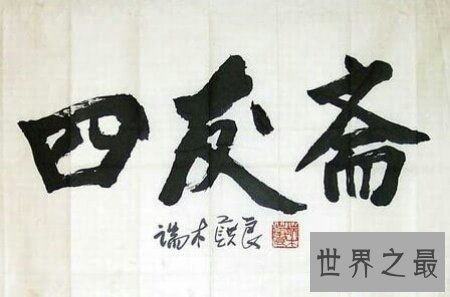 四友斋
端木蕻良
世界之最